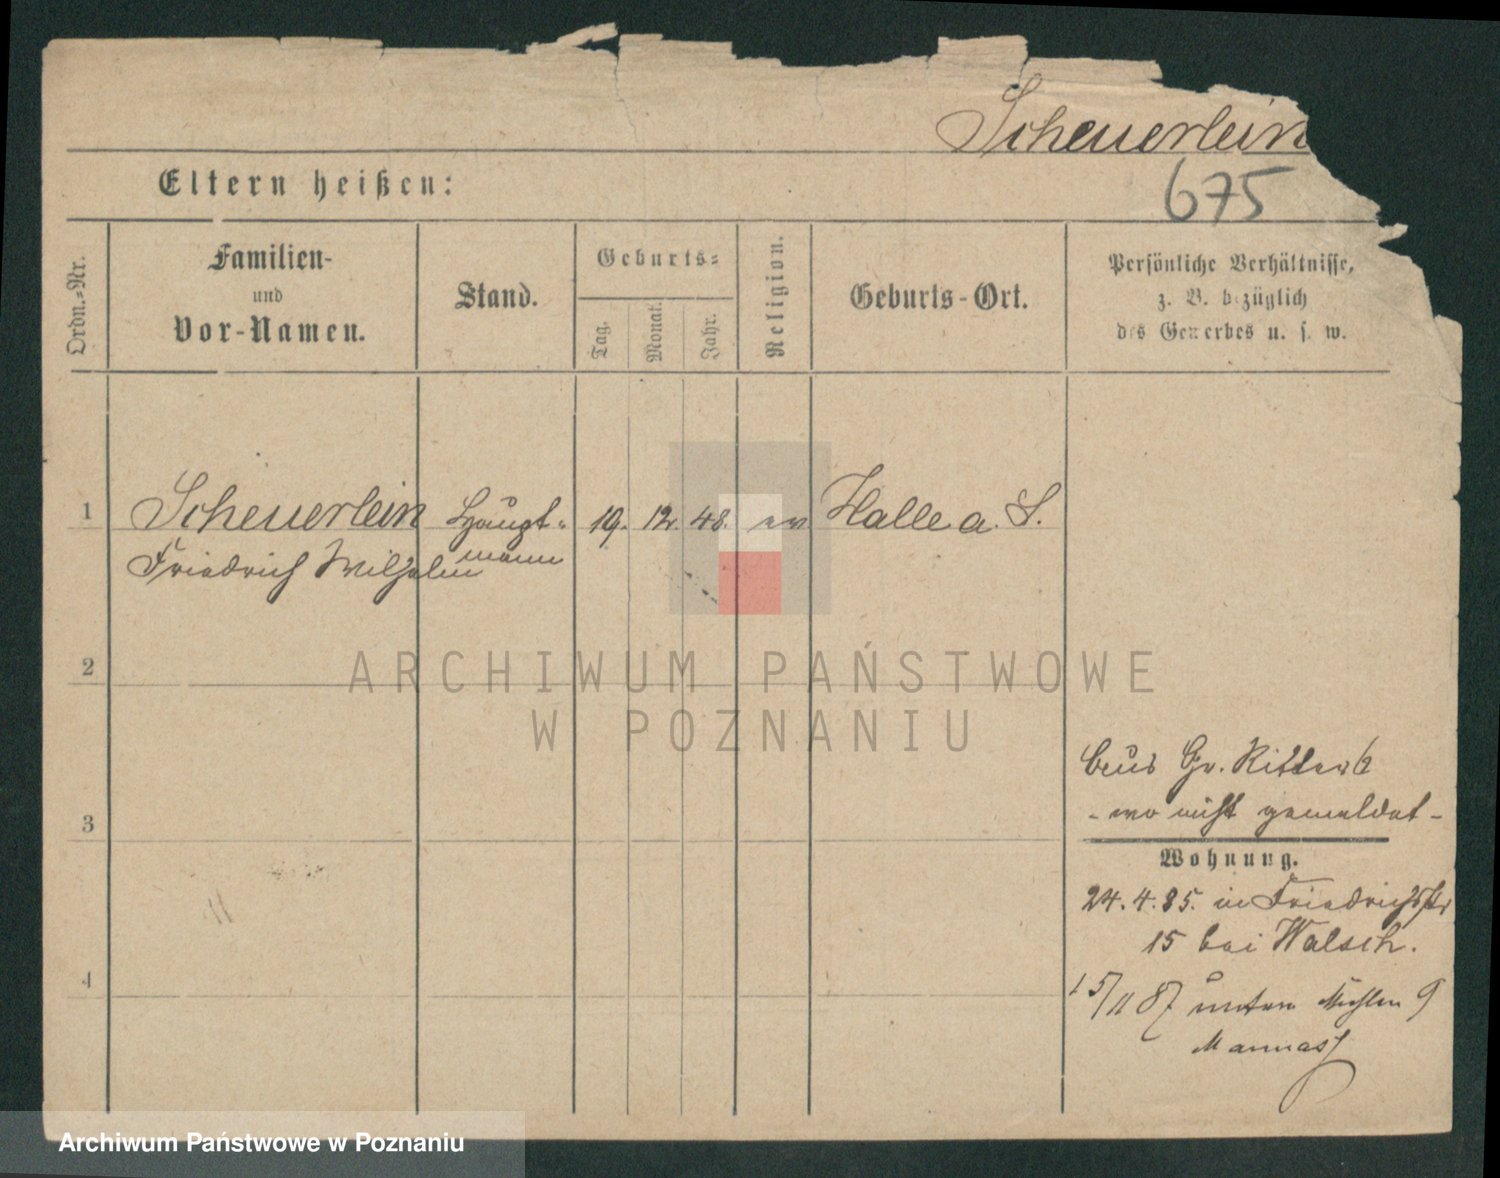 Scheuerlein
675
Eltern heißen:
Ordn.-Nr.
Familien-
und
Vor-Namen.
Stand.
Geburts-
Tag.
Monat.
Jahr.
Religion.
Geburts-Ort.
Persönliche Verhältnisse,
z. B. bezüglich
des Gewerbes u. s. w.
1 Scheuerlein Haupt- 19. 12. 48. ev Halle a. S.
Friedrich Wilhelm mann
2
ARCHIWUM PAŃSTWOWE
W POZNANIU
Gr. Ritter
- wo nicht gemeldet -
3
Wohnung.
24. 4. 85. in Friedrichstr
15 bei Walsch.
4
15/11 87 untere Mühlen 9
Archiwum Państwowe w Poznaniu